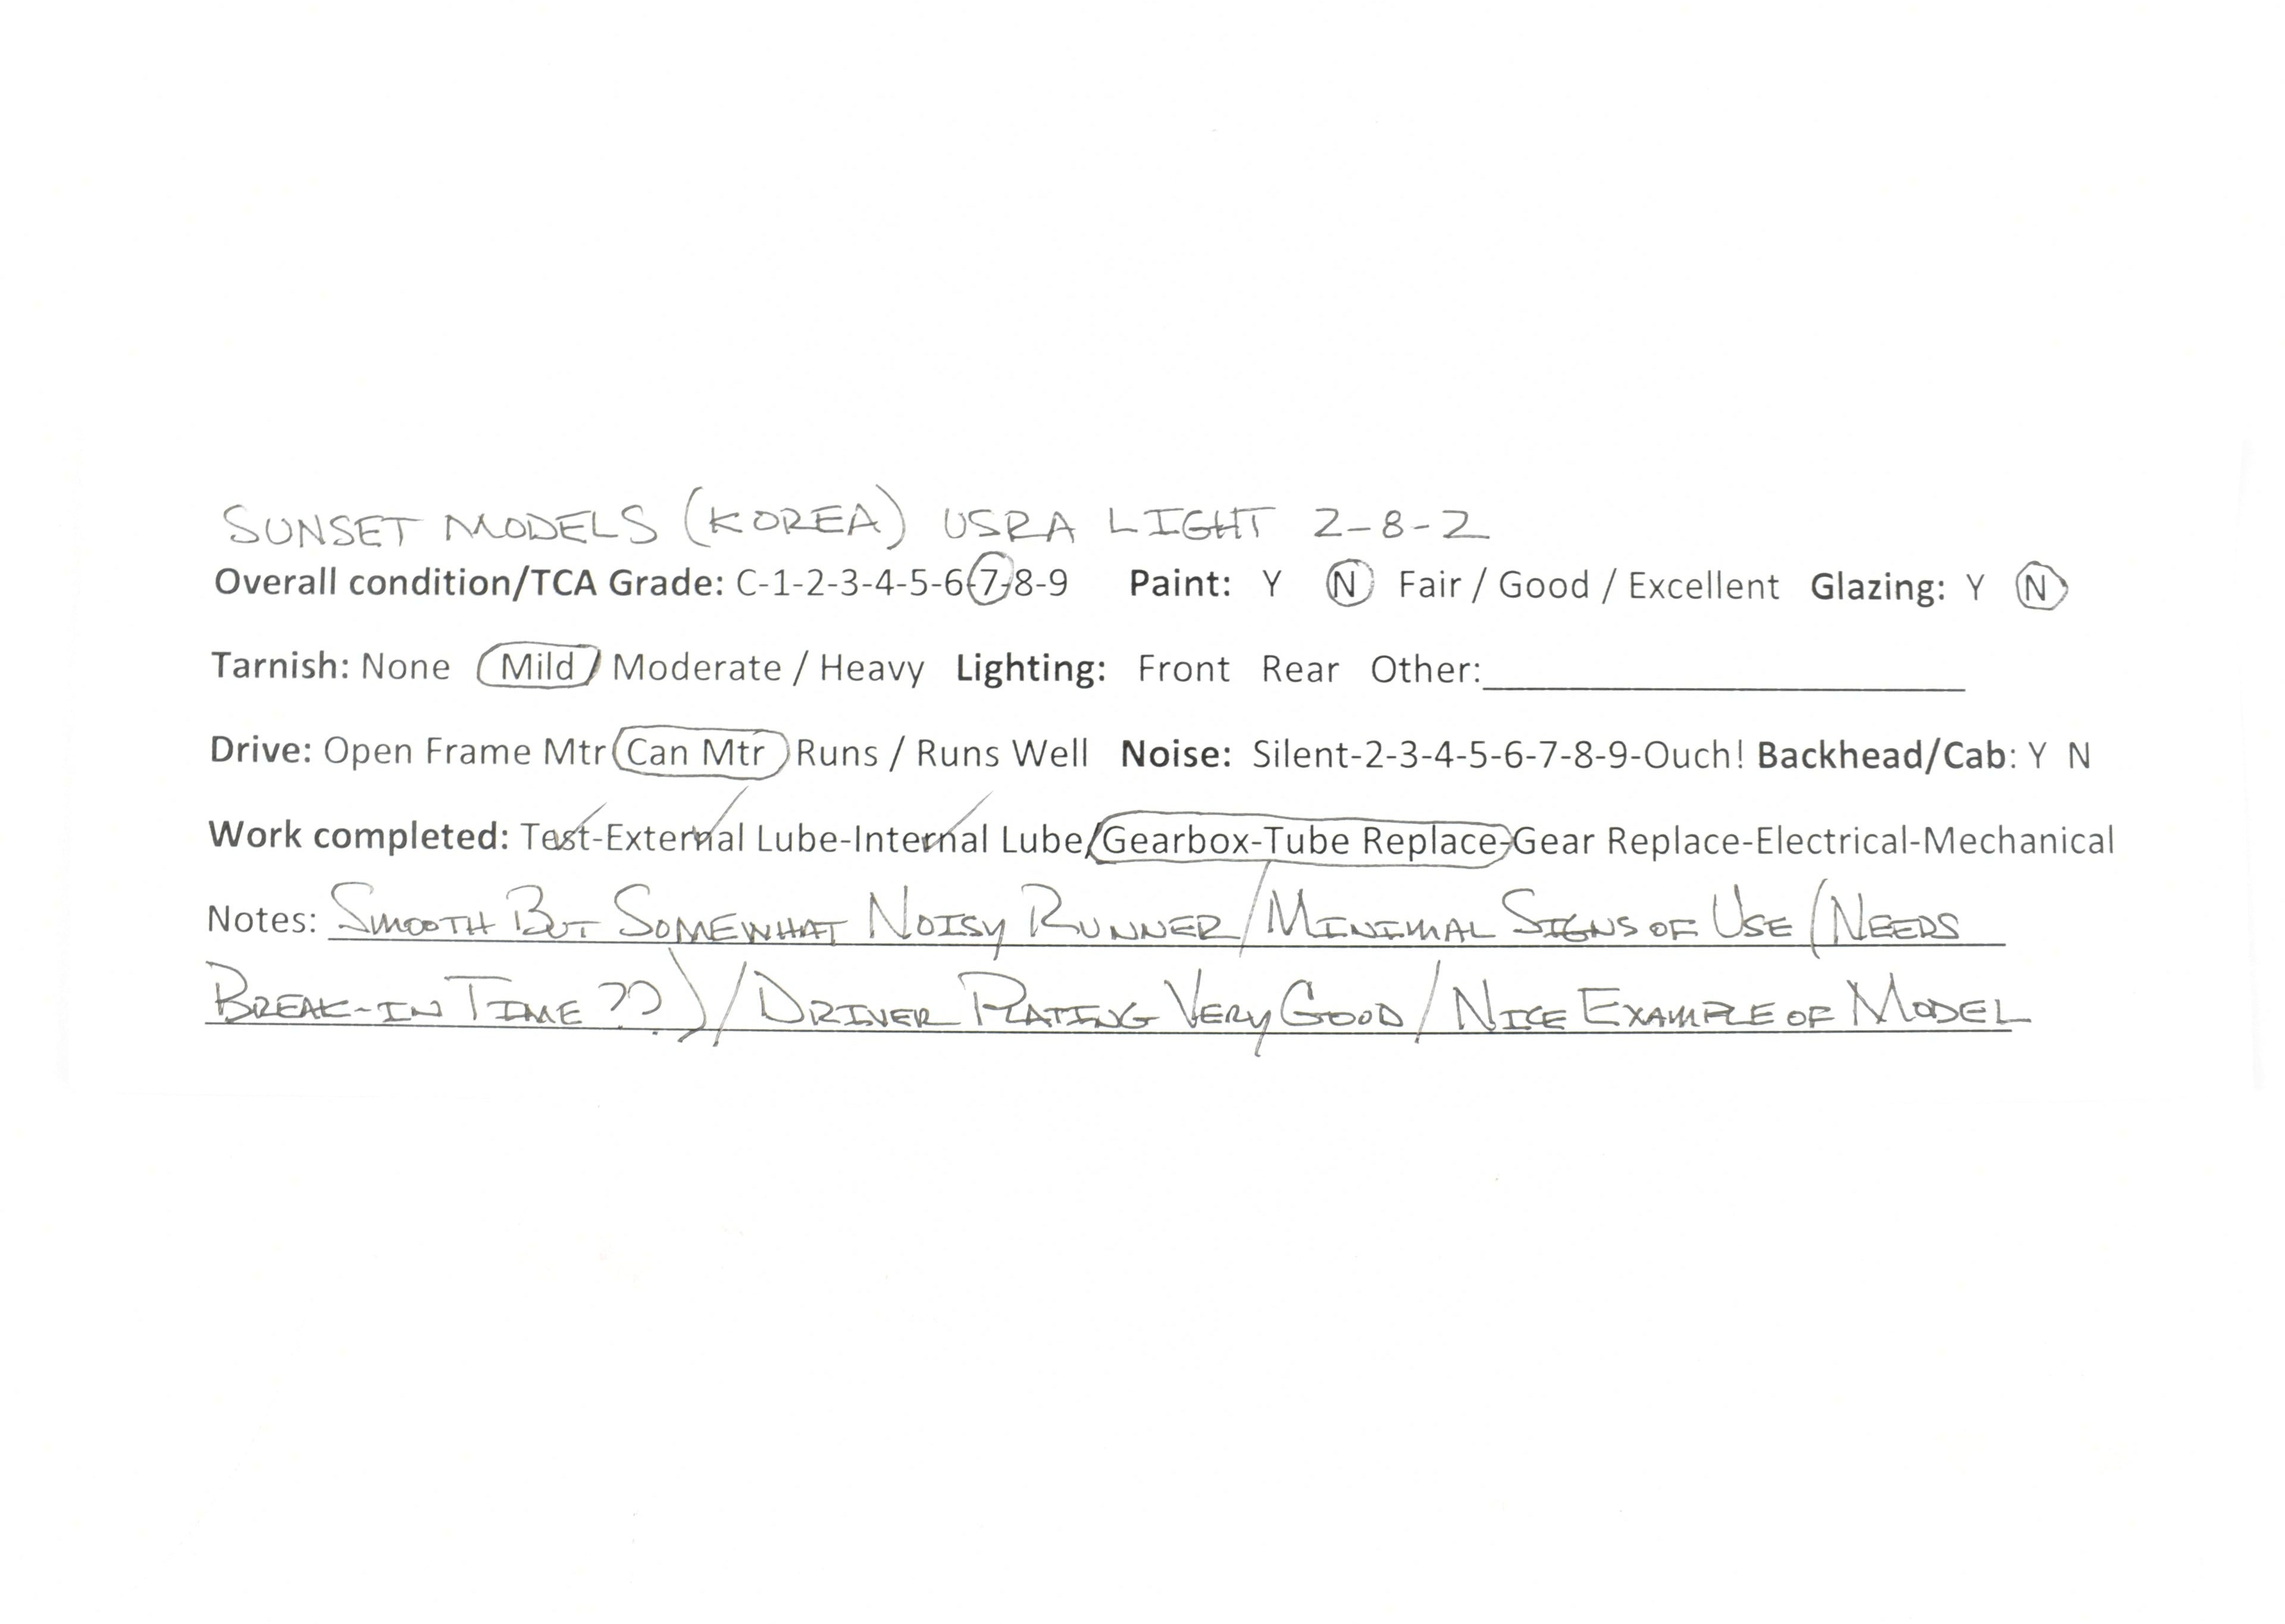 SUNSET MODELS (KOREA) USRA LIGHT 2-8-2
Overall condition/TCA Grade: C-1-2-3-4-5-6-7-8-9 Paint: Y N Fair / Good / Excellent Glazing: Y N
Tarnish: None Mild / Moderate / Heavy Lighting: Front Rear Other:
Drive: Open Frame Mtr Can Mtr Runs / Runs Well Noise: Silent-2-3-4-5-6-7-8-9-Ouch! Backhead/Cab: Y N
Work completed: Test-External Lube-Internal Lube/Gearbox-Tube Replace-Gear Replace-Electrical-Mechanical
Notes: SMOOTH BUT SOMEWHAT NOISY RUNNER/MINIMAL SIGNS OF USE (NEEDS
BREAK-IN TIME ??)/DRIVER RATING VERY GOOD/NICE EXAMPLE OF MODEL